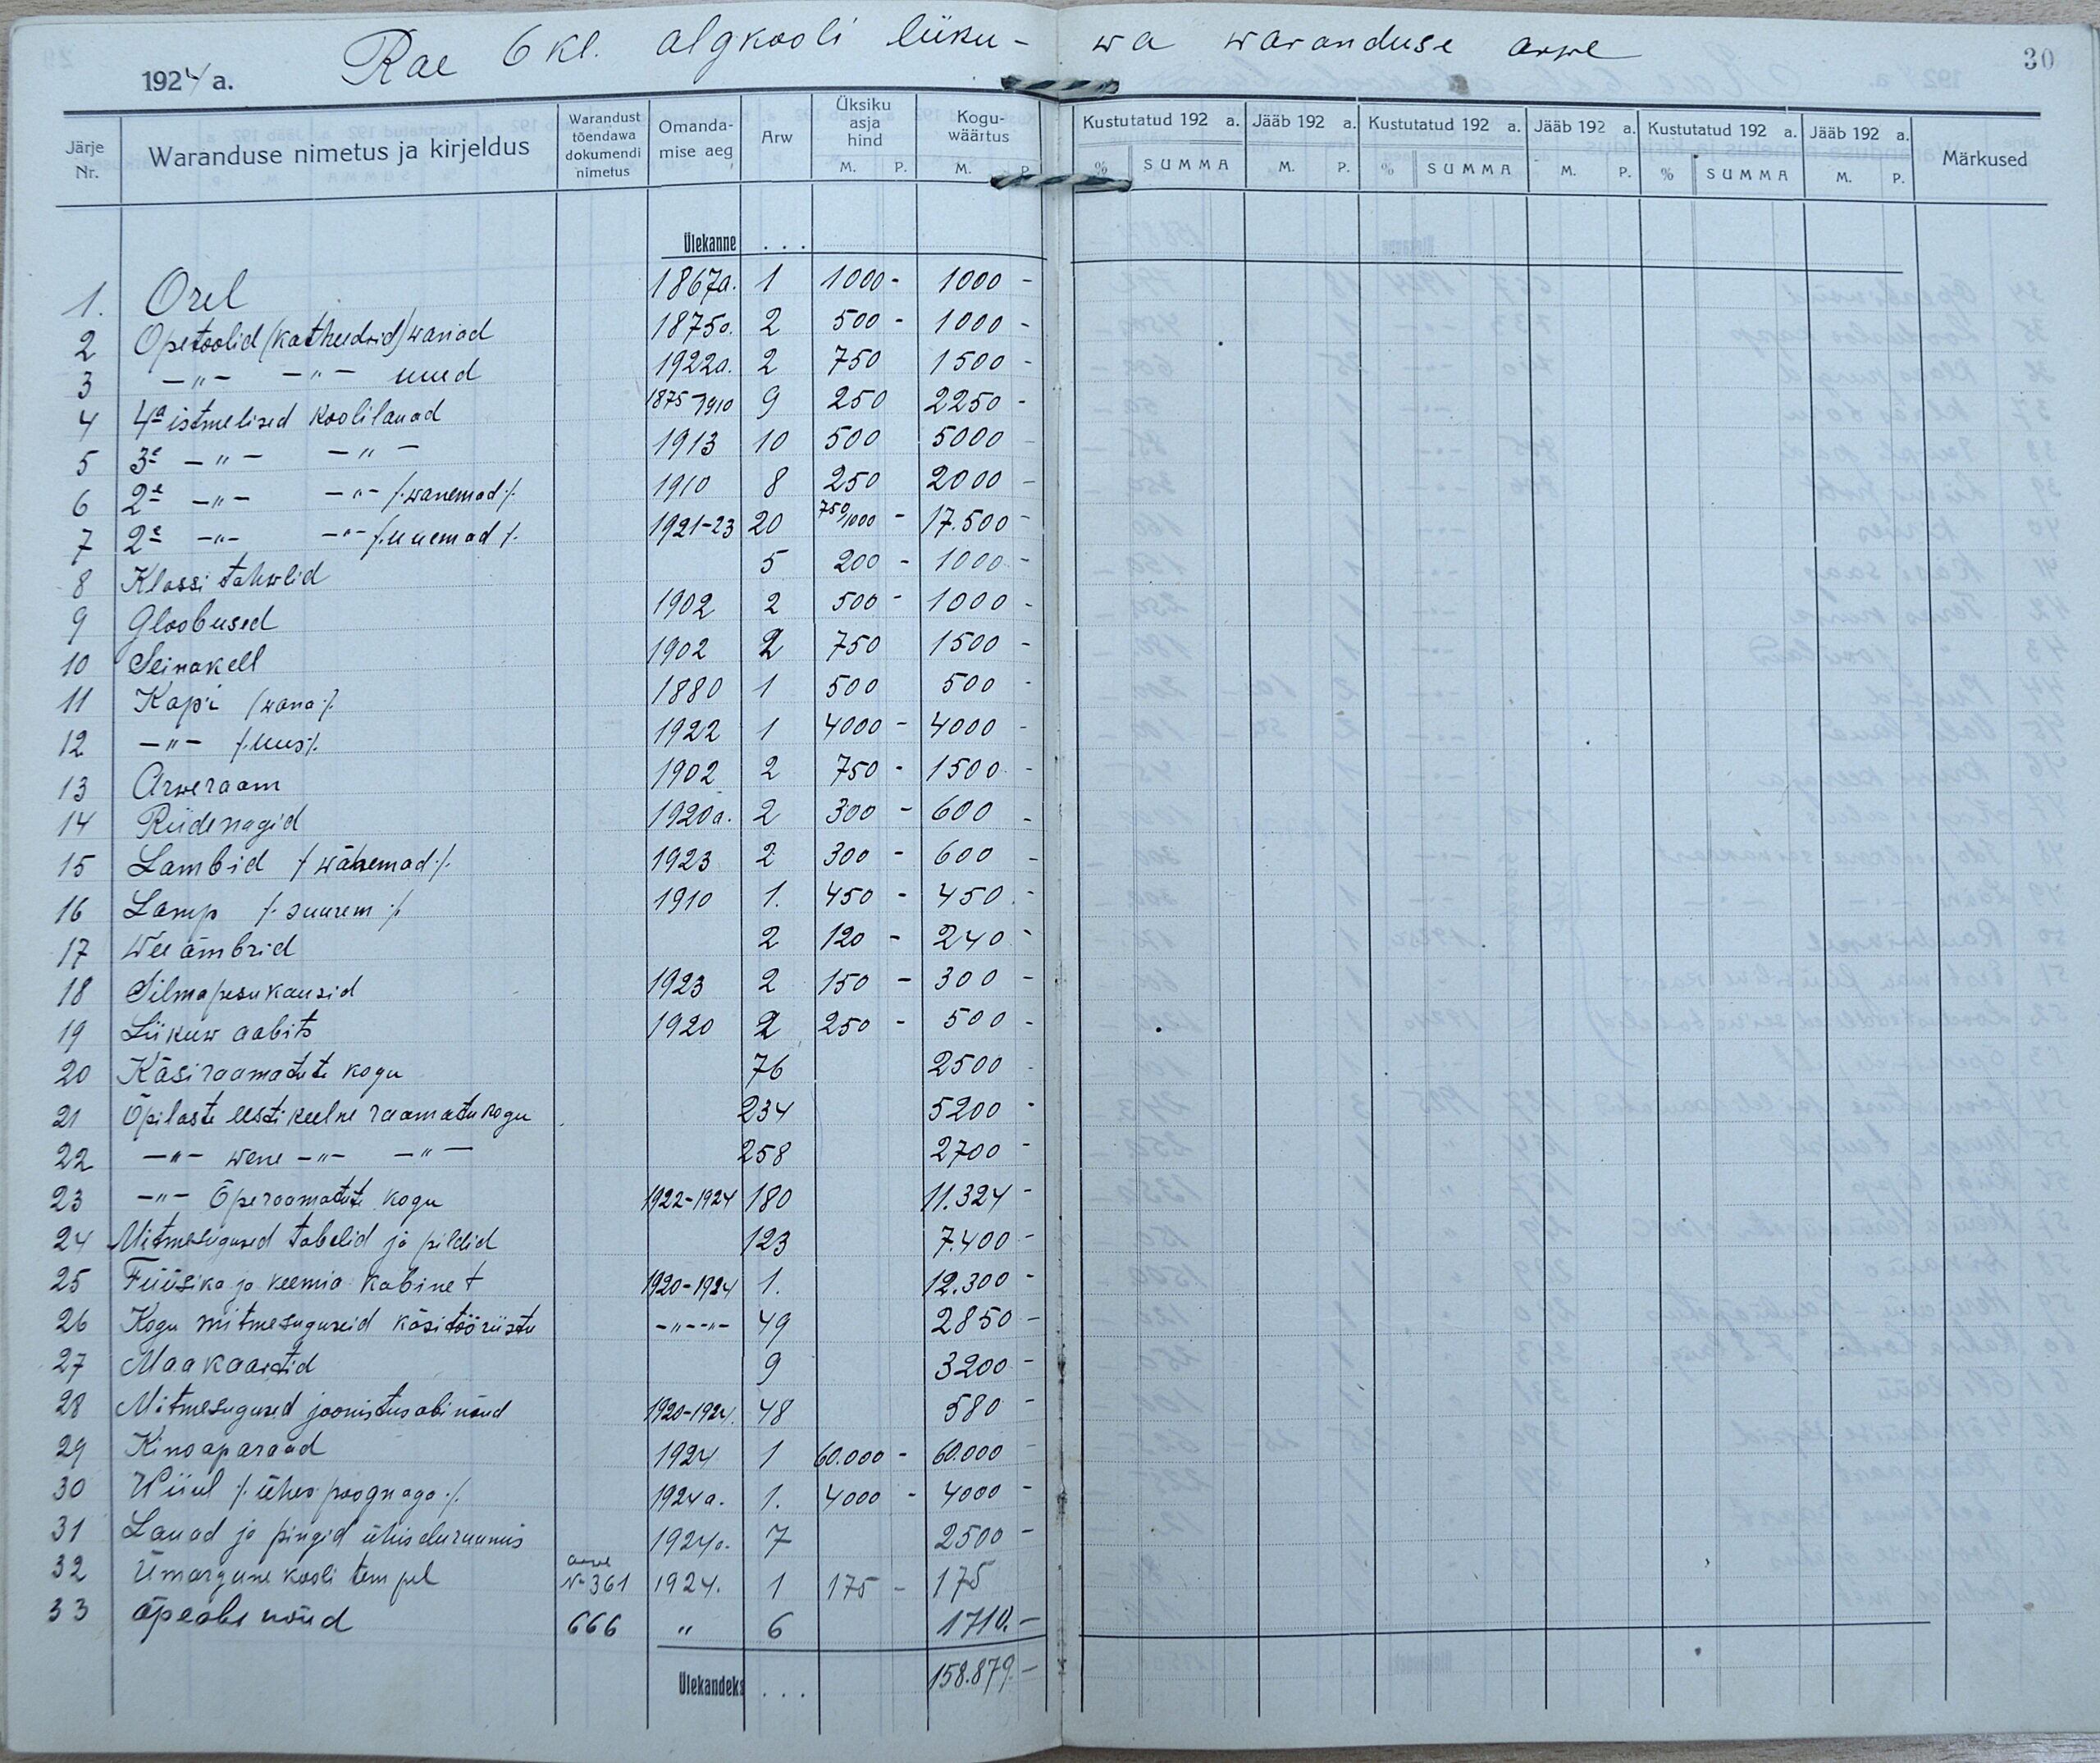 Rae 6 kl. algkooli liiku- wa waranduse arwe
1924 a.
30
Järje Nr. Waranduse nimetus ja kirjeldus Warandust tõendawa dokumendi nimetus Omandamise aeg Arw Üksiku asja hind M. P. Koguwäärtus M. P. Kustutatud 192 a. % SUMMA Jääb 192 a. M. P. Kustutatud 192 a. % SUMMA Jääb 192 a. M. P. Kustutatud 192 a. % SUMMA Jääb 192 a. M. P. Märkused
Ülekanne . . .
1. Orel 1867a. 1 1000 - 1000 -
2 Opetoolid (katheedrid) wanad 1875a. 2 500 - 1000 -
3 -"- -"- uued 1922a. 2 750 1500 -
4 4a istmelised koolilauad 1875-1910 9 250 2250 -
5 3e -"- -"- 1913 10 500 5000 -
6 2e -"- -"- /.wanemad./. 1910 8 250 2000 -
7 2e -"- -"- /.uuemad/. 1921-23 20 750/1000 - 17.500 -
8 Klassi tahwlid 5 200 - 1000 -
9 Gloobused 1902 2 500 - 1000 -
10 Seinakell 1902 2 750 1500 -
11 Kapi /wana/. 1880 1 500 500 -
12 -"- /.uus/. 1922 1 4000 - 4000 -
13 Arweraam 1902 2 750 - 1500 -
14 Riidenagid 1920a. 2 300 - 600 -
15 Lambid / wähemad/. 1923 2 300 - 600 -
16 Lamp /. suurem ./. 1910 1. 450 - 450 -
17 Wee ämbrid 2 120 - 240 -
18 Silmapesukausid 1923 2 150 - 300 -
19 Liikuw aabits 1920 2 250 - 500 -
20 Käsiraamatute kogu 76 2500
21 Õpilaste eestikeelne raamatukogu 234 5200 -
22 -"- wene -"- -"- 258 2700 -
23 -"- Õperaamatute kogu 1922-1924 180 11.324 -
24 Mitmesugused tabelid ja pildid 123 7.400 -
25 Füüsika ja keemia kabinet 1920-1924 1. 12.300 -
26 Kogu mitmesuguseid käsitööriistu -"--"- 49 2850 -
27 Maakaardid 9 3200 -
28 Mitmesugused joonistusabinõud 1920-1924. 48 580 -
29 Kinoaparaad 1924 1 60.000 - 60.000 -
30 Wiiul /. ühes poognaga ./. 1924a. 1. 4000 - 4000 -
31 Lauad ja pingid ühiseluruumis 1924a. 7 2500 -
32 Ümargune kooli tempel arwe № 361 1924. 1 175 - 175
33 õpeabi nõud 666 " 6 1710. -
Ülekandeks . . . 158.879. -